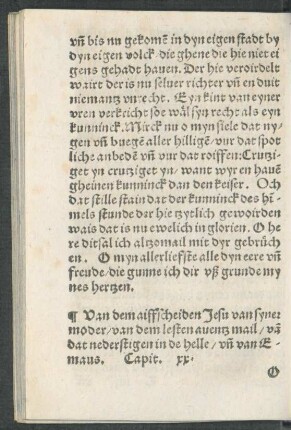 vñ bis nu gekomē in dyn eigen stadt by
dyn eigen volck die ghene die hie niet ei
gens gehadt hauen. Der hie veroirdelt
wairt der is nu seluer richter vñ en duit
niemantz vnrecht. Eyn kint van eyner
vren verkeicht ſo wāl syn recht als eyn
kunninck. Mirck nu o myn siele dat ny-
gen vñ buegē aller hilligē/ vur dat spot
liche anbedē vñ vur dat roiffen: Crutzi-
get yn crutziget yn/ want wyr en hauē
gheinen kunninck dan den keiser. Och
dat stille stain dat der kunninck des hē-
mels stunde der hie tzytlich gewoirden
wais dat is nu ewelich in glorien. O he
re dit sal ich altzomail mit dyr gebrūch
en. O myn allerliefste alle dyn eere vñ
freude/ die gunne ich dir vß grunde my
nes hertzen.
¶ Van dem aiffscheiden Jesu van syner
moder/ van dem lesten auentz mail/ vā
dat nederstigen in de helle/ vñ van E-
maus. Capit. xx.
O